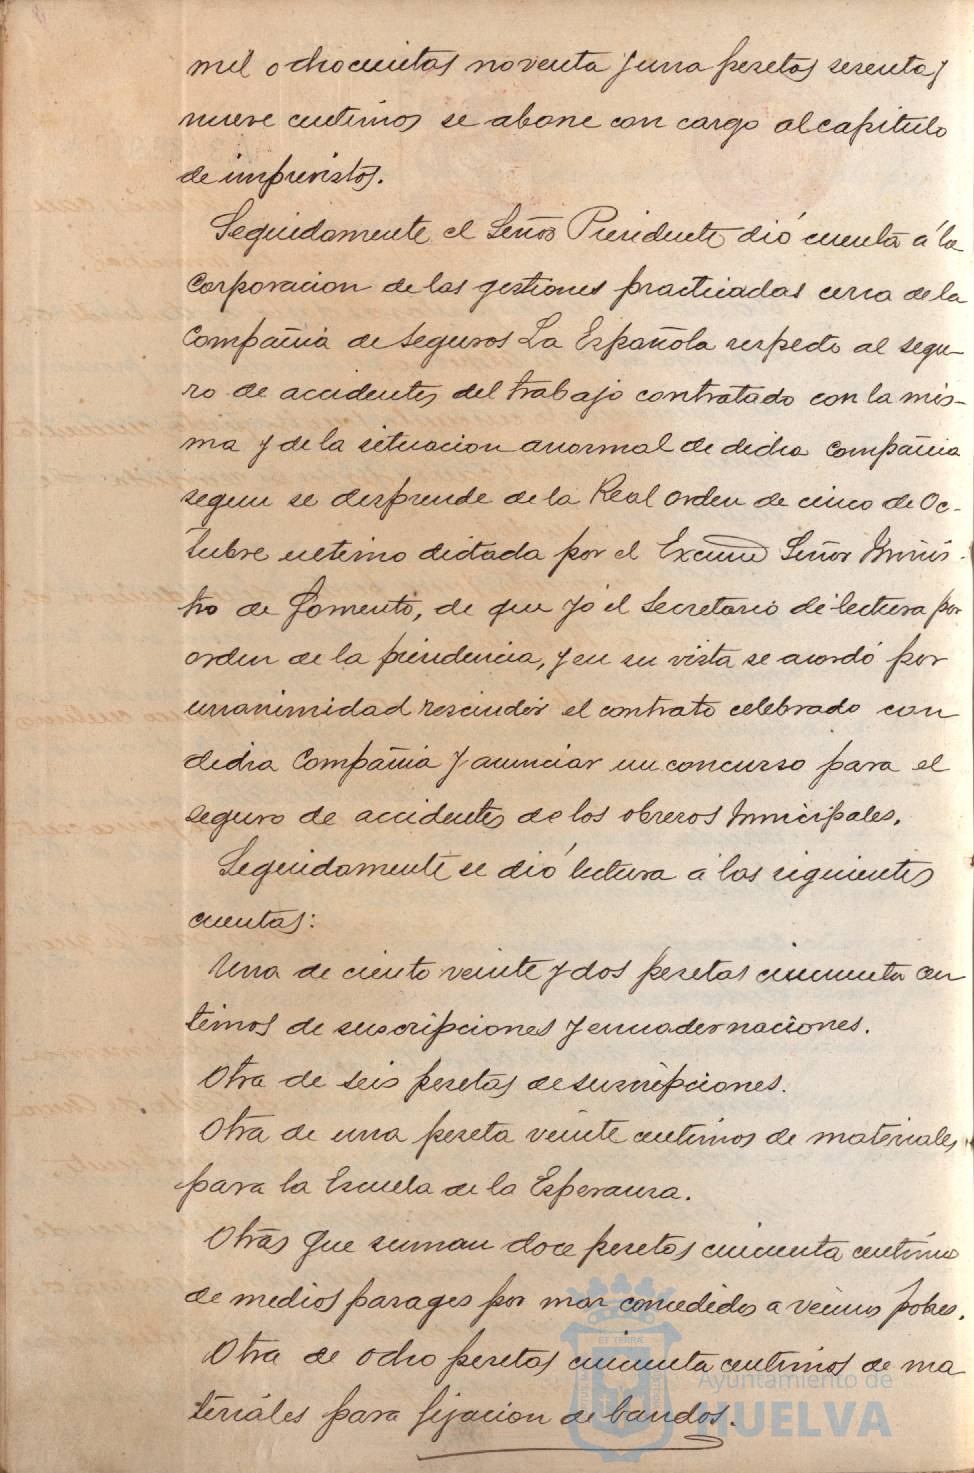 mil ochocientas noventa y una pesetas sesenta y
nueve centimos se abone con cargo al capitulo
de imprevistos.
Seguidamente el Señor Presidente dió cuenta á la
Corporacion de las gestiones practicadas cerca de la
Compañia de Seguros La Española respecto al segu-
ro de accidentes del trabajo contratado con la mis-
ma y de la situacion anormal de dicha Compañia
segun se desprende de la Real orden de cinco de Oc-
tubre ultimo dictada por el Excmo Señor Minis-
tro de Fomento, de que yo el Secretario di lectura por
orden de la presidencia, y en su vista se acordó por
unanimidad rescindir el contrato celebrado con
dicha Compañia y anunciar un concurso para el
seguro de accidentes de los obreros Municipales.
Seguidamente se dió lectura á las siguientes
cuentas:
Una de ciento veinte y dos pesetas cincuenta cen
timos de suscripciones y encuadernaciones.
Otra de seis pesetas de suscripciones.
Otra de una peseta veinte centimos de materiales
para la Escuela de la Esperanza.
Otras que suman doce pesetas cincuenta centimos
de medios pasages por mar concedidos a vecinos pobres.
Otra de ocho pesetas cincuenta centimos de ma
teriales para fijacion de bandos.
Ayuntamiento de
HUELVA